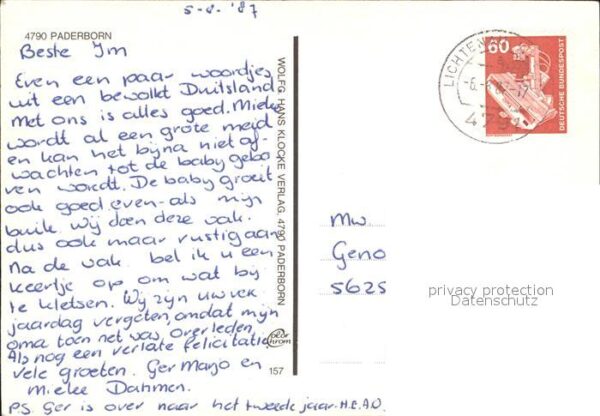 5-8-'87
4790 PADERBORN
Beste Im
Even een paar woordjes
uit een bewolkt Duitsland
Met ons is alles goed. Mieke
wordt al een grote meid
en kan het bijna niet af-
wachten tot de baby gebo
ren wordt. De baby groeit
ook goed even-als mijn
buik. Wij doen deze vak.
dus ook maar rustig aan
Na de vak. bel ik u een
keertje op om wat bij
te kletsen. Wij zijn uw ver
jaardag vergeten, omdat mijn
oma toen net was overleden.
Als nog een verlate felicitatie
vele groeten. Ger Marjo en
Mieke Dahmen.
P.S. Ger is over naar het tweede jaar H.E.A.O.
WOLFG. HANS KLOCKE VERLAG, 4790 PADERBORN
157
60
DEUTSCHE BUNDESPOST
Mw.
Geno
5625
privacy protection
Datenschutz